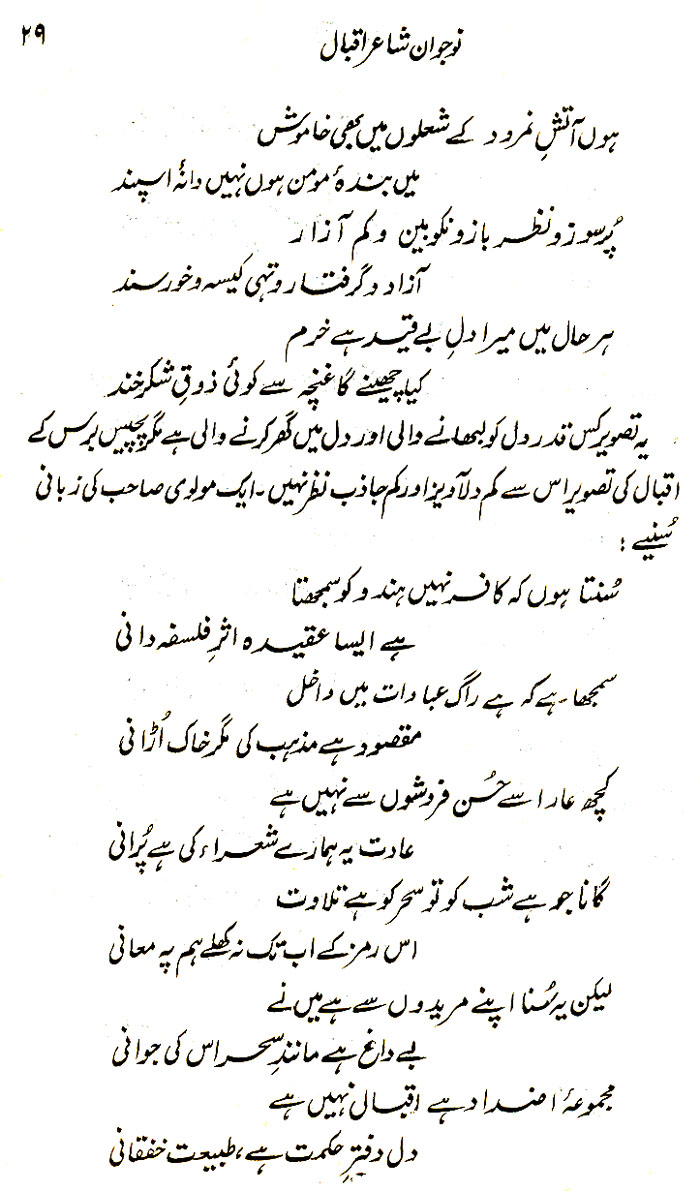 نوجوان شاعر اقبال ۲۹
ہوں آتشِ نمرود کے شعلوں میں بھی خاموش
میں بندۂ مومن ہوں نہیں دانۂ اسپند
پُرسوز و نظر باز و نکوبین و کم آزار
آزاد و گرفتار و تہی کیسہ و خورسند
ہر حال میں میرا دلِ بے قید ہے خرم
کیا چھینے گا غنچہ سے کوئی ذوقِ شکر خند
یہ تصویر کس قدر دل کو لبھانے والی اور دل میں گھر کرنے والی ہے مگر پچیس برس کے
اقبال کی تصویر اس سے کم دلآویز اور کم جاذب نظر نہیں ۔ ایک مولوی صاحب کی زبانی
سُنیے :
سُنتا ہوں کہ کافر نہیں ہندو کو سمجھتا
ہے ایسا عقیدہ اثرِ فلسفہ دانی
سمجھا ہے کہ ہے راگ عبادات میں داخل
مقصود ہے مذہب کی مگر خاک اُڑانی
کچھ عار اسے حُسن فروشوں سے نہیں ہے
عادت یہ ہمارے شعراء کی ہے پُرانی
گانا جو ہے شب کو تو سحر کو ہے تلاوت
اس رمز کے اب تک نہ کھلے ہم پہ معانی
لیکن یہ سُنا اپنے مریدوں سے ہے میں نے
بے داغ ہے مانندِ سحر اس کی جوانی
مجموعۂ اضداد ہے اقبال نہیں ہے
دل دفترِ حکمت ہے، طبیعت خفقانی